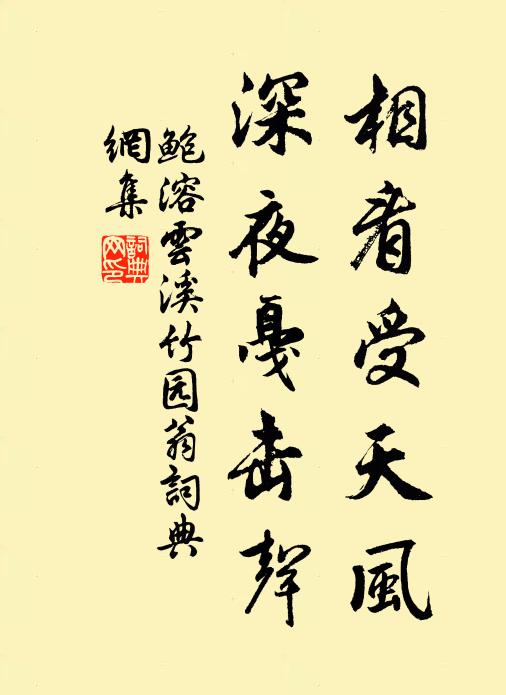 相看受天風
深夜戛击聲
鮑溶雲溪竹园翁詞典
網集
詞典
网印